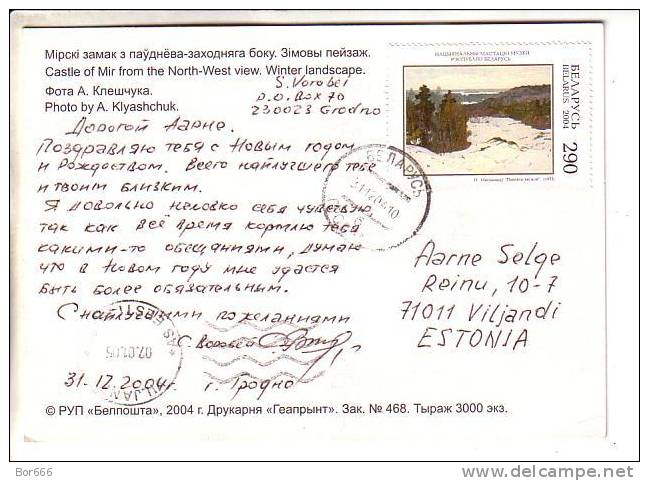 Мірскі замак з паўднёва-заходняга боку. Зімовы пейзаж.
Castle of Mir from the North-West view. Winter landscape.
Фота А. Клешчука.
Photo by A. Klyashchuk.
S. Vorobei
P.O. Box 70
230023 Grodno
НАЦЫЯНАЛЬНЫ МАСТАЦКІ МУЗЕЙ
РЭСПУБЛІКІ БЕЛАРУСЬ
БЕЛАРУСЬ
BELARUS 2004
290
БЕЛАРУСЬ
Дорогой Аарне.
Поздравляю тебя с Новым годом
и Рождеством. Всего наилучшего тебе
и твоим близким.
Я довольно неловко себя чувствую
так как всё время кормлю тебя
какими-то обещаниями, думаю
что в Новом году мне удастся
быть более обязательным.
С наилучшими пожеланиями
С. Воробей
31.12.2004г. г. Гродно
Aarne Selge
Reinu, 10-7
71011 Viljandi
ESTONIA
07.01.05
© РУП «Белпошта», 2004 г. Друкарня «Геапрынт». Зак. № 468. Тыраж 3000 экз.
Bor666
delcampe.net